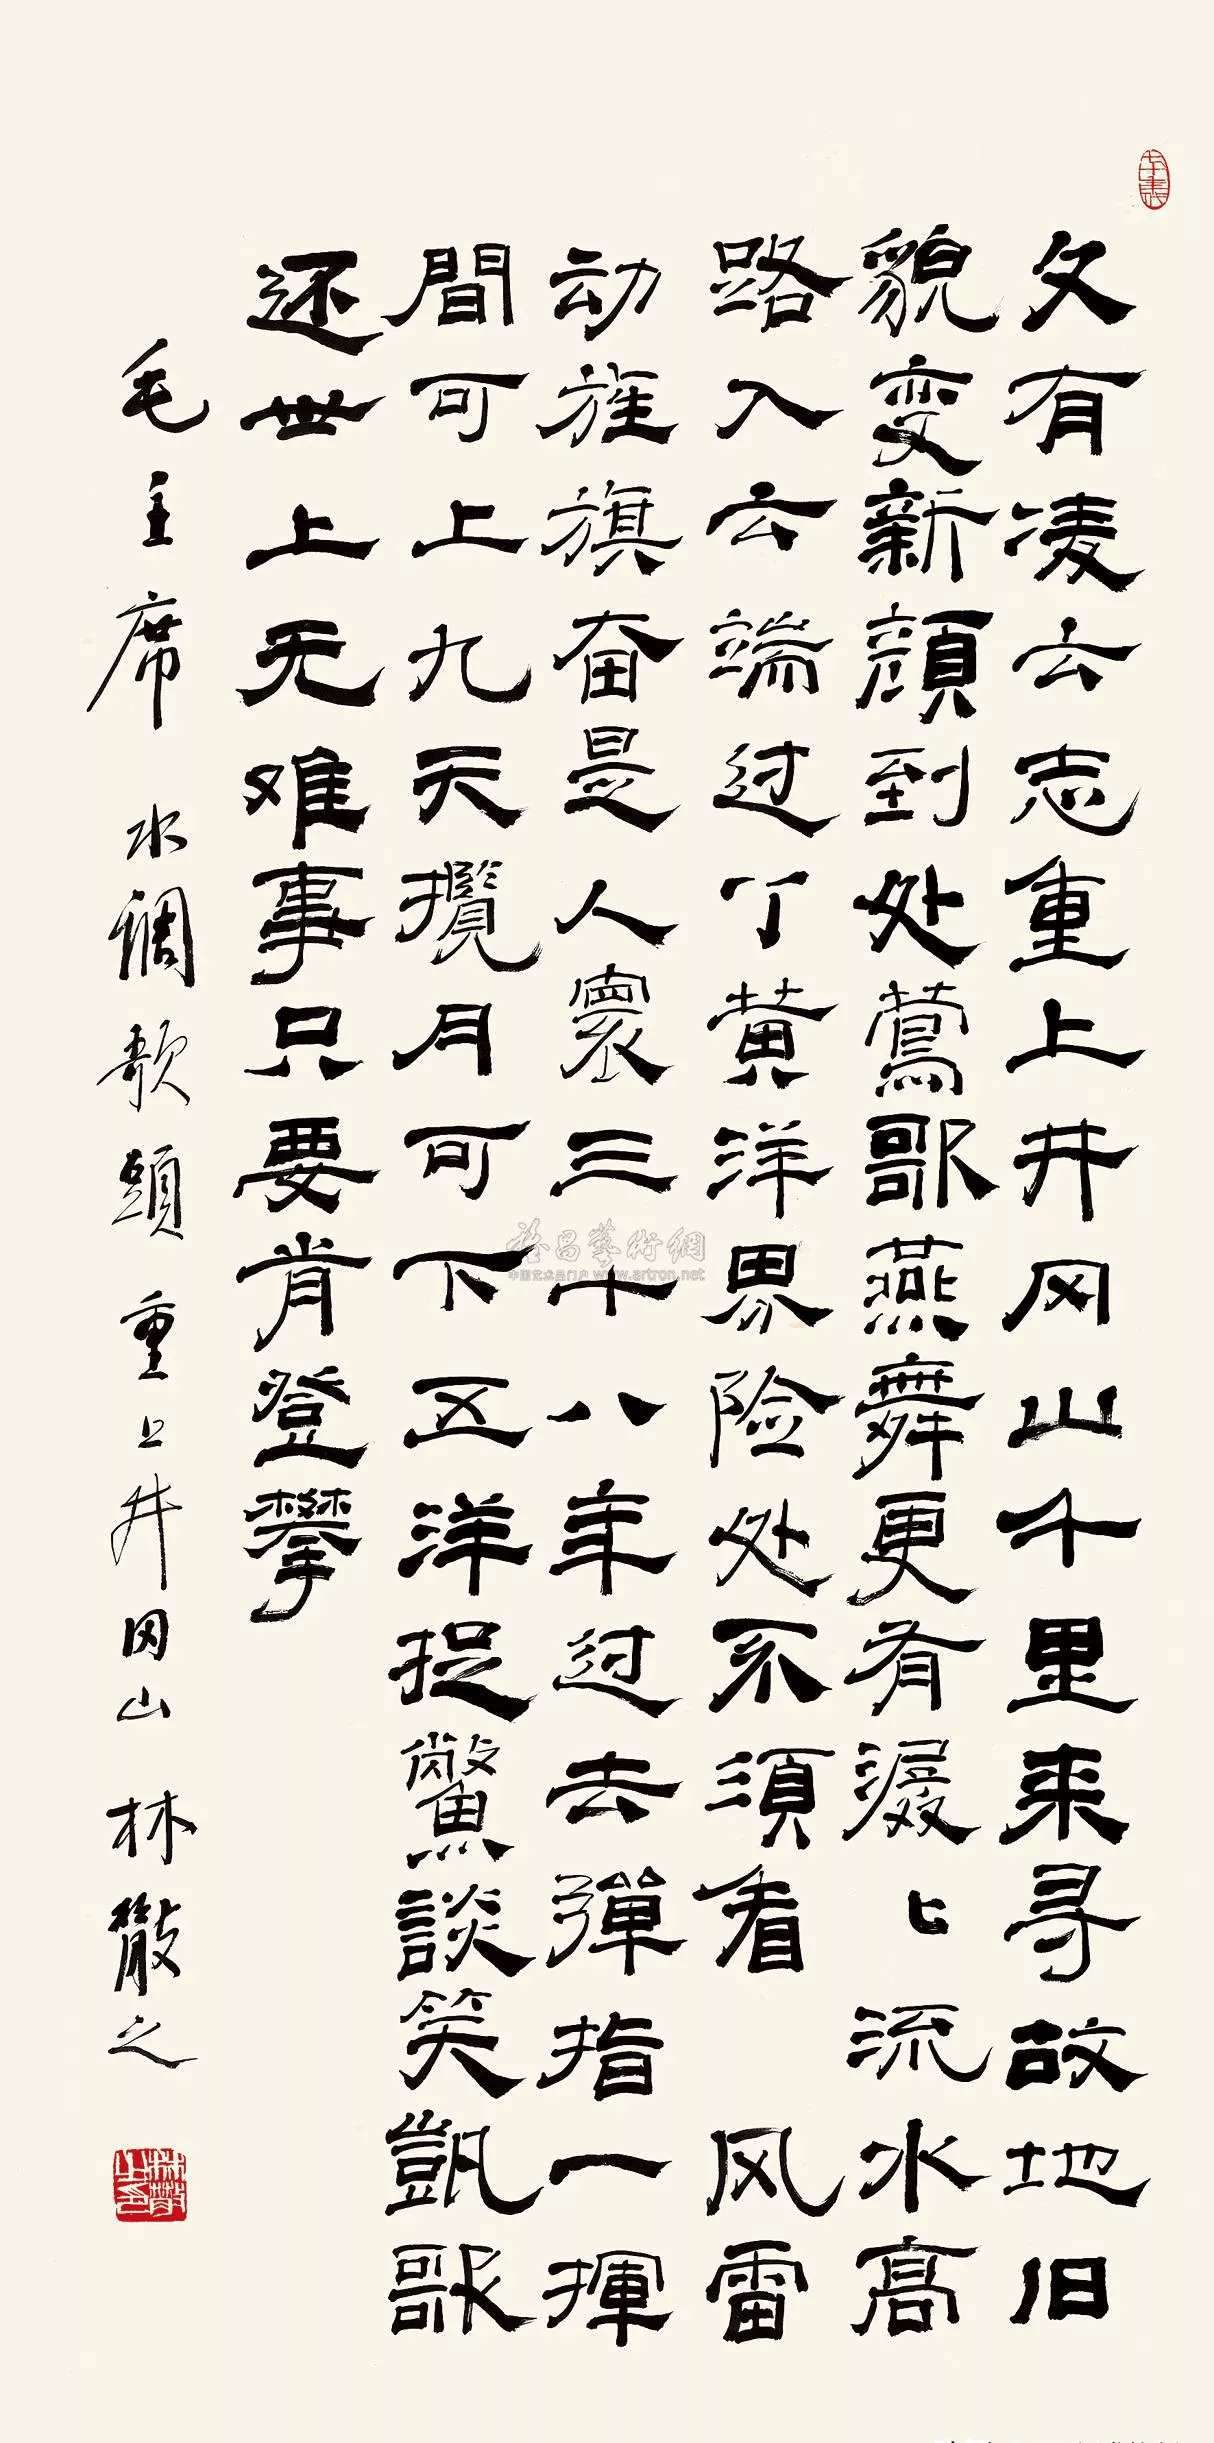 久有凌云志重上井冈山千里来寻故地旧
貌变新顔到处鶯歌燕舞更有潺〻流水高
路入云端过了黄洋界险处不須看 风雷
动旌旗奋是人寰三十八年过去彈指一揮
間可上九天攬月可下五洋捉鱉談笑凱歌
还世上无难事只要肯登攀
毛主席 水调歌頭 重上井冈山 林散之
林散之印
雅昌藝術網
中国艺术品门户 www.artron.net